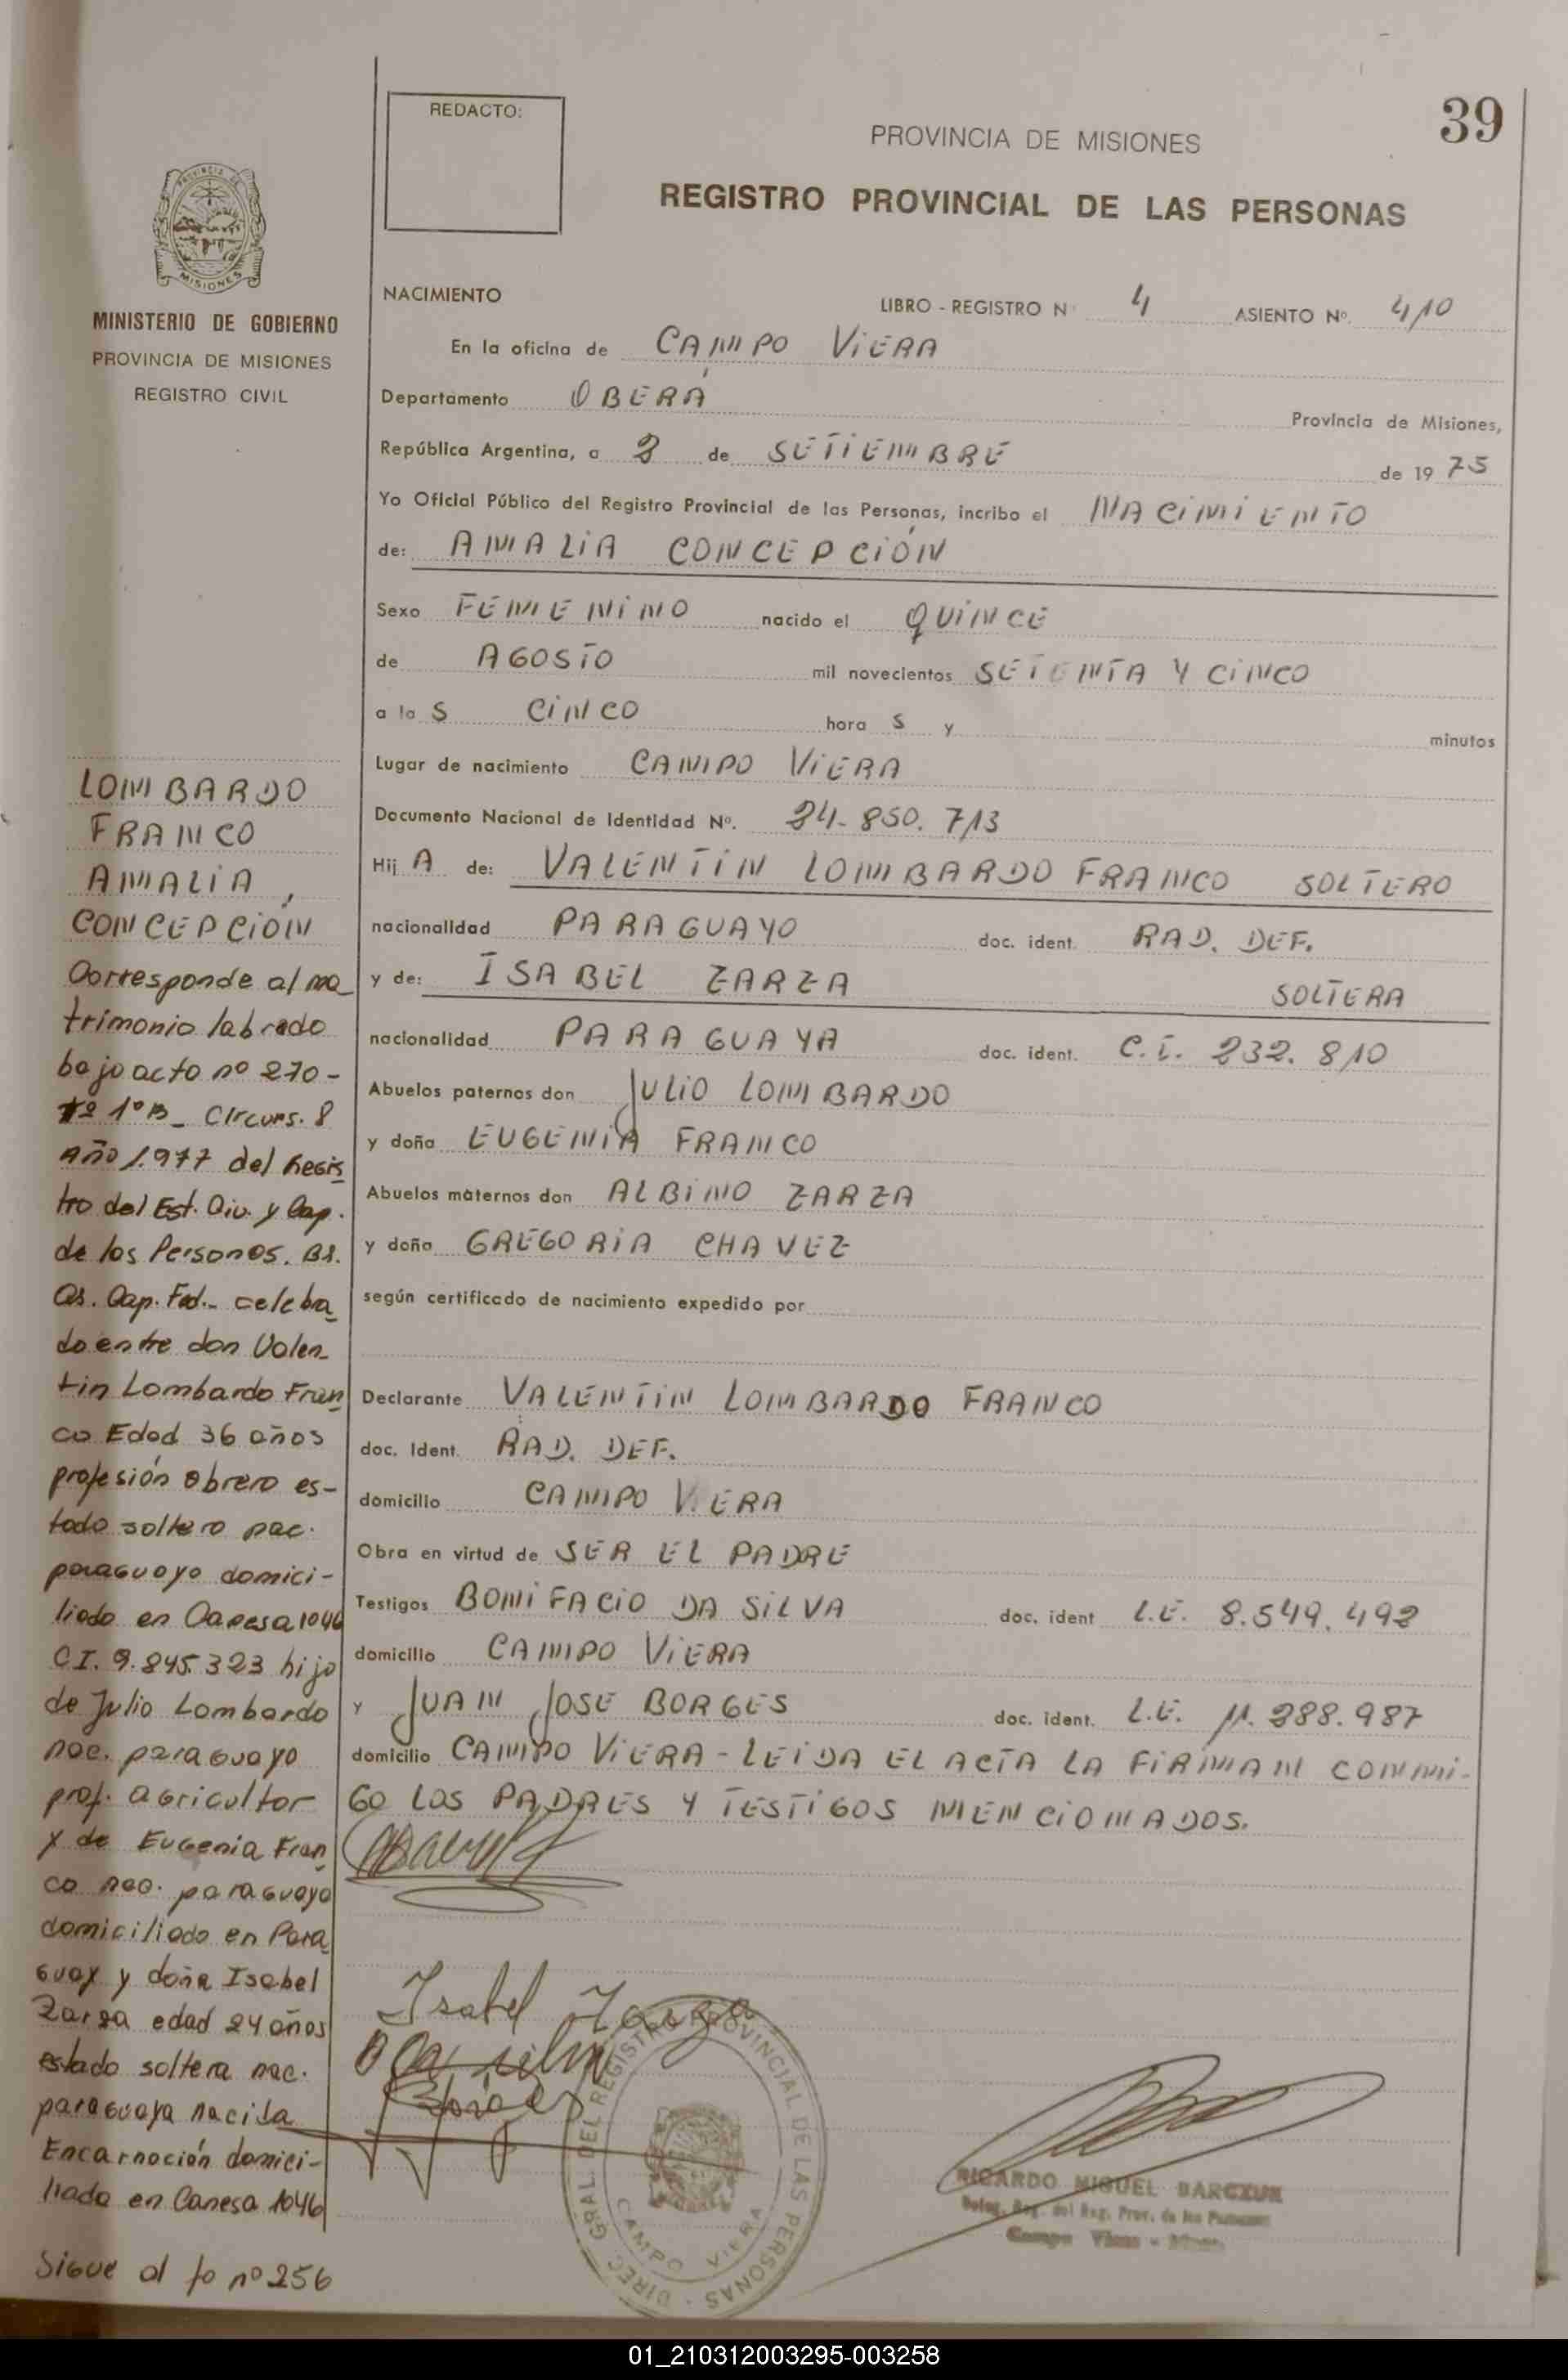 39
REDACTO:
PROVINCIA DE MISIONES
REGISTRO PROVINCIAL DE LAS PERSONAS
PROVINCIA DE
MISIONES
MINISTERIO DE GOBIERNO
PROVINCIA DE MISIONES
REGISTRO CIVIL
NACIMIENTO LIBRO - REGISTRO N° 4 ASIENTO Nº. 410
En la oficina de CAMPO VIERA
Departamento OBERÁ Provincia de Misiones,
República Argentina, a 2 de SETIEMBRE de 19 75
Yo Oficial Público del Registro Provincial de las Personas, incribo el NACIMIENTO
de: AMALIA CONCEPCIÓN
Sexo FEMENINO nacido el QUINCE
de AGOSTO mil novecientos SETENTA Y CINCO
a la S CINCO hora S y minutos
Lugar de nacimiento CAMPO VIERA
Documento Nacional de Identidad Nº. 24.850.713
Hij A de: VALENTIN LOMBARDO FRANCO SOLTERO
nacionalidad PARAGUAYO doc. ident. RAD. DEF.
y de: ISABEL ZARZA SOLTERA
nacionalidad PARAGUAYA doc. ident. C.I. 232.810
Abuelos paternos don JULIO LOMBARDO
y doña EUGENIA FRANCO
Abuelos maternos don ALBINO ZARZA
y doña GREGORIA CHAVEZ
según certificado de nacimiento expedido por
Declarante VALENTIN LOMBARDO FRANCO
doc. Ident. RAD. DEF.
domicilio CAMPO VIERA
Obra en virtud de SER EL PADRE
Testigos BONIFACIO DA SILVA doc. ident L.E. 8.549.492
domicilio CAMPO VIERA
y JUAN JOSE BORGES doc. ident. L.E. 11.288.987
domicilio CAMPO VIERA - LEIDA EL ACTA LA FIRMAN CONMI-
GO LOS PADRES Y TESTIGOS MENCIONADOS.
Isabel Zarza
Da silva
DIREC. GRAL. DEL REGISTRO PROVINCIAL DE LAS PERSONAS
CAMPO VIERA
RICARDO MIGUEL BARCZUK
Deleg. Reg. del Reg. Prov. de las Personas
Campo Viera - Mnes.
LOMBARDO
FRANCO
AMALIA
CONCEPCIÓN
Corresponde al ma
trimonio labrado
bajo acto nº 270-
tº 1ºB_ Circuns. 8
Año 1.977 del Regis
tro del Est. Civ. y Cap.
de las Personas. Bs.
As. Cap. Fed._ celebra
do entre don Valen
tin Lombardo Fran
co Edad 36 años
profesión obrero es-
tado soltero nac.
paraguayo domici-
liado en Canesa 1046
CI. 9.845.323 hijo
de Julio Lombardo
nac. paraguayo
prof. agricultor
y de Eugenia Fran
co nac. paraguaya
domiciliado en Para
guay y doña Isabel
Zarza edad 24 años
estado soltera nac.
paraguaya nacida
Encarnación domici-
liada en Canesa 1046
Sigue al fo nº 256
01_210312003295-003258